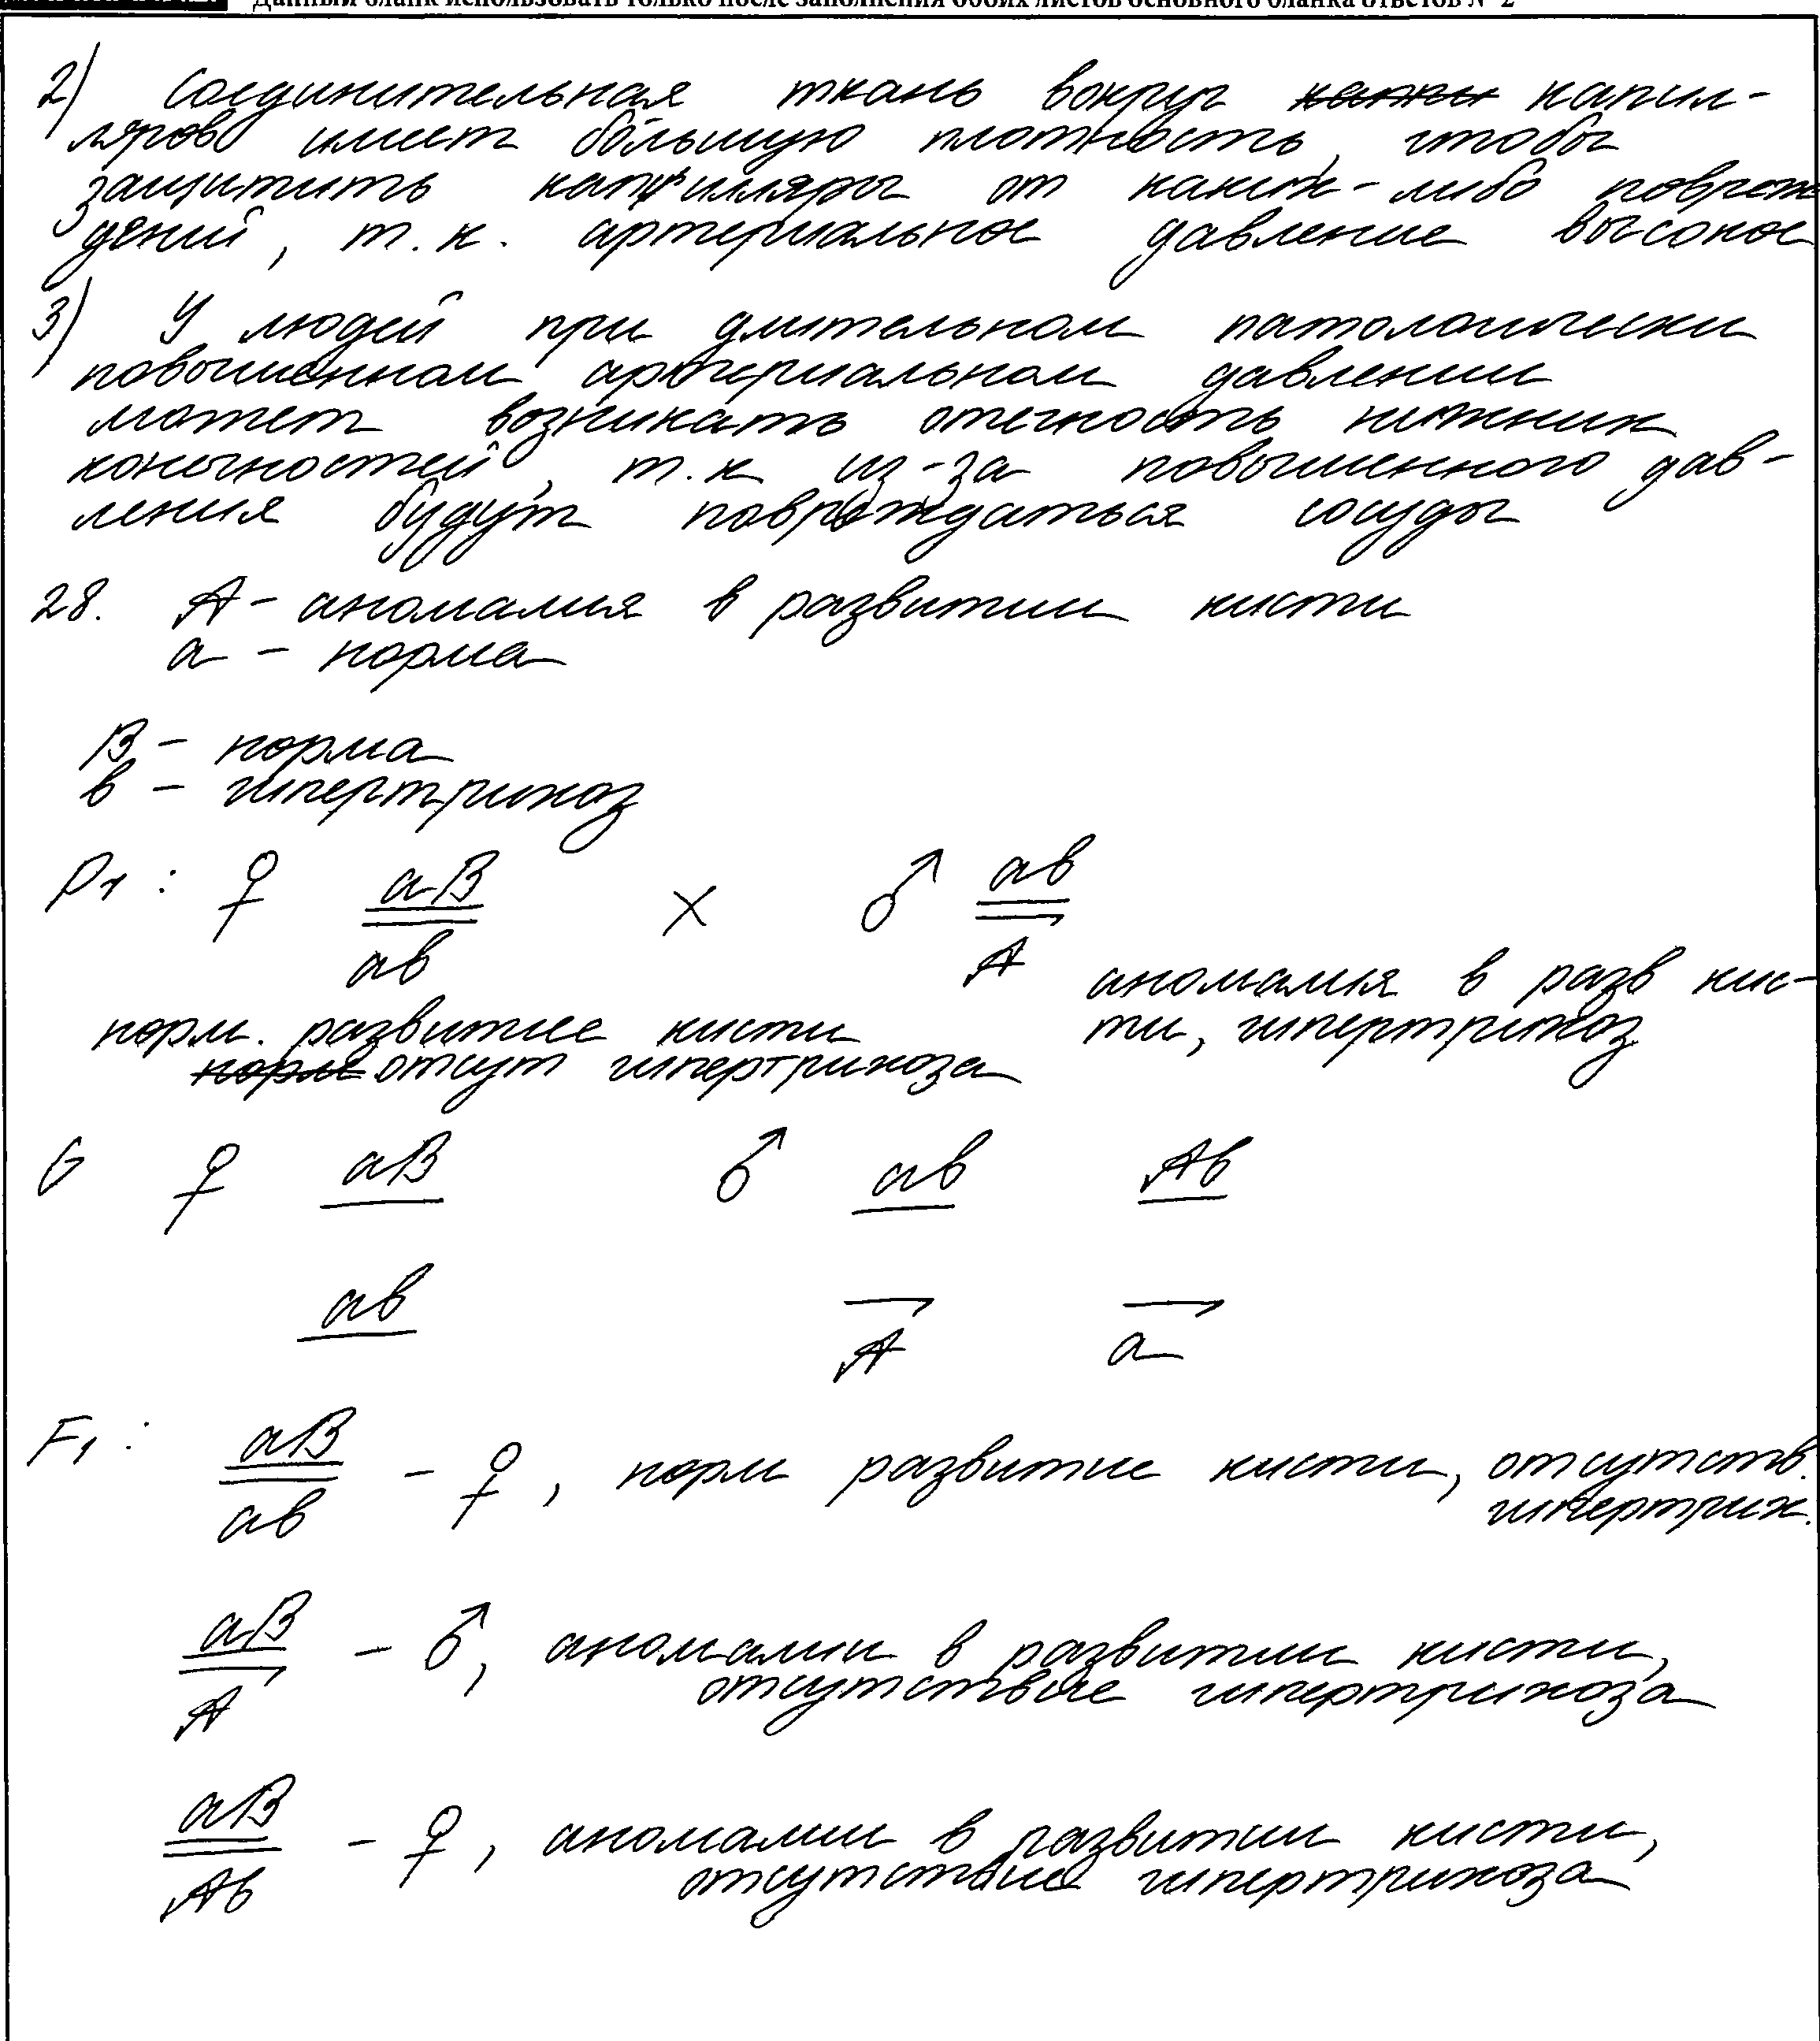 Данный бланк использовать только после заполнения обоих листов основного бланка ответов № 2
2) Соединительная ткань вокруг капил-
ляров имеет бо́льшую плотность, чтобы
защитить капилляры от каких-либо повреж
дений, т.к. артериальное давление высокое
3) У людей при длительном патологически
повышенном артериальном давлении
может возникать отечность нижних
конечностей, т.к из-за повышенного дав-
ления будут повреждаться сосуды
28. А - аномалия в развитии кисти
а - норма
В - норма
в - гипертрихоз
P1 : ♀ аВ × ♂ ав
ав А
аномалия в разв кис-
норм. развитие кисти ти, гипертрихоз
отсут гипертрихоза
G ♀ аВ ♂ ав Ав
ав А а
F1 : аВ - ♀, норм развитие кисти, отсутств.
ав гипертрих.
аВ - ♂, аномалии в развитии кисти,
А отсутствие гипертрихоза
аВ - ♀, аномалии в развитии кисти,
Ав отсутствие гипертрихоза